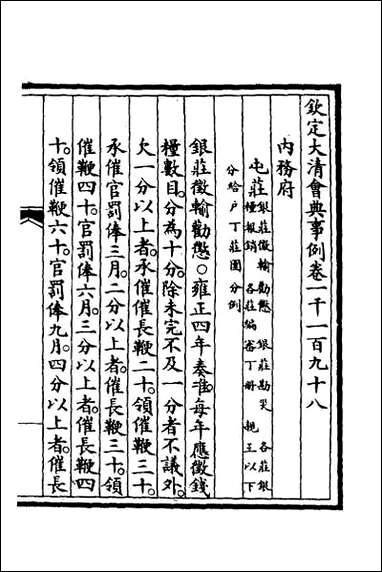 欽定大清會典事例卷一千一百九十八
內務府
屯莊銀莊徵輸勸懲 銀莊勘災 各莊銀
糧報銷 各莊編審丁冊 親王以下
分給戶丁莊園分例
銀莊徵輸勸懲○雍正四年奏准每年應徵錢
糧數目分為十分除未完不及一分者不議外
欠一分以上者承催催長鞭二十領催鞭三十
承催官罰俸三月二分以上者催長鞭三十領
催鞭四十官罰俸六月三分以上者催長鞭四
十領催鞭六十官罰俸九月四分以上者催長